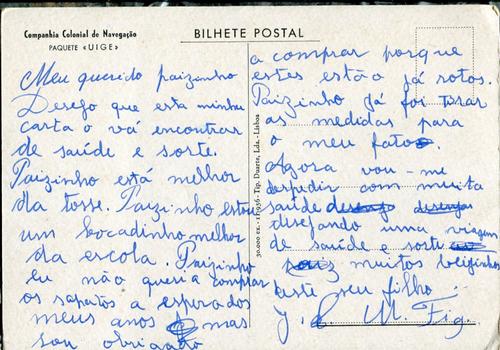 Companhia Colonial de Navegação
PAQUETE «UIGE»
BILHETE POSTAL
Meu querido paizinho
Desejo que esta minha
carta o vá encontrar
de saúde e sorte.
Paizinho está melhor
da tosse. Paizinho estou
um bocadinho melhor
da escola. Paizinho
eu não queria comprar
os sapatos a espera dos
meus anos mas
sou obrigado
a comprar porque
estes estão já rotos.
Paizinho já foi tirar
as medidas para
o meu fato.
Agora vou-me
despedir com muita
saúde
desejando uma viagem
de saúde e sorte
muitos beijinhos
deste seu filho
J. C. M. Fig.
30.000 ex. - 1-1956 - Tip. Duarte, Lda. - Lisboa